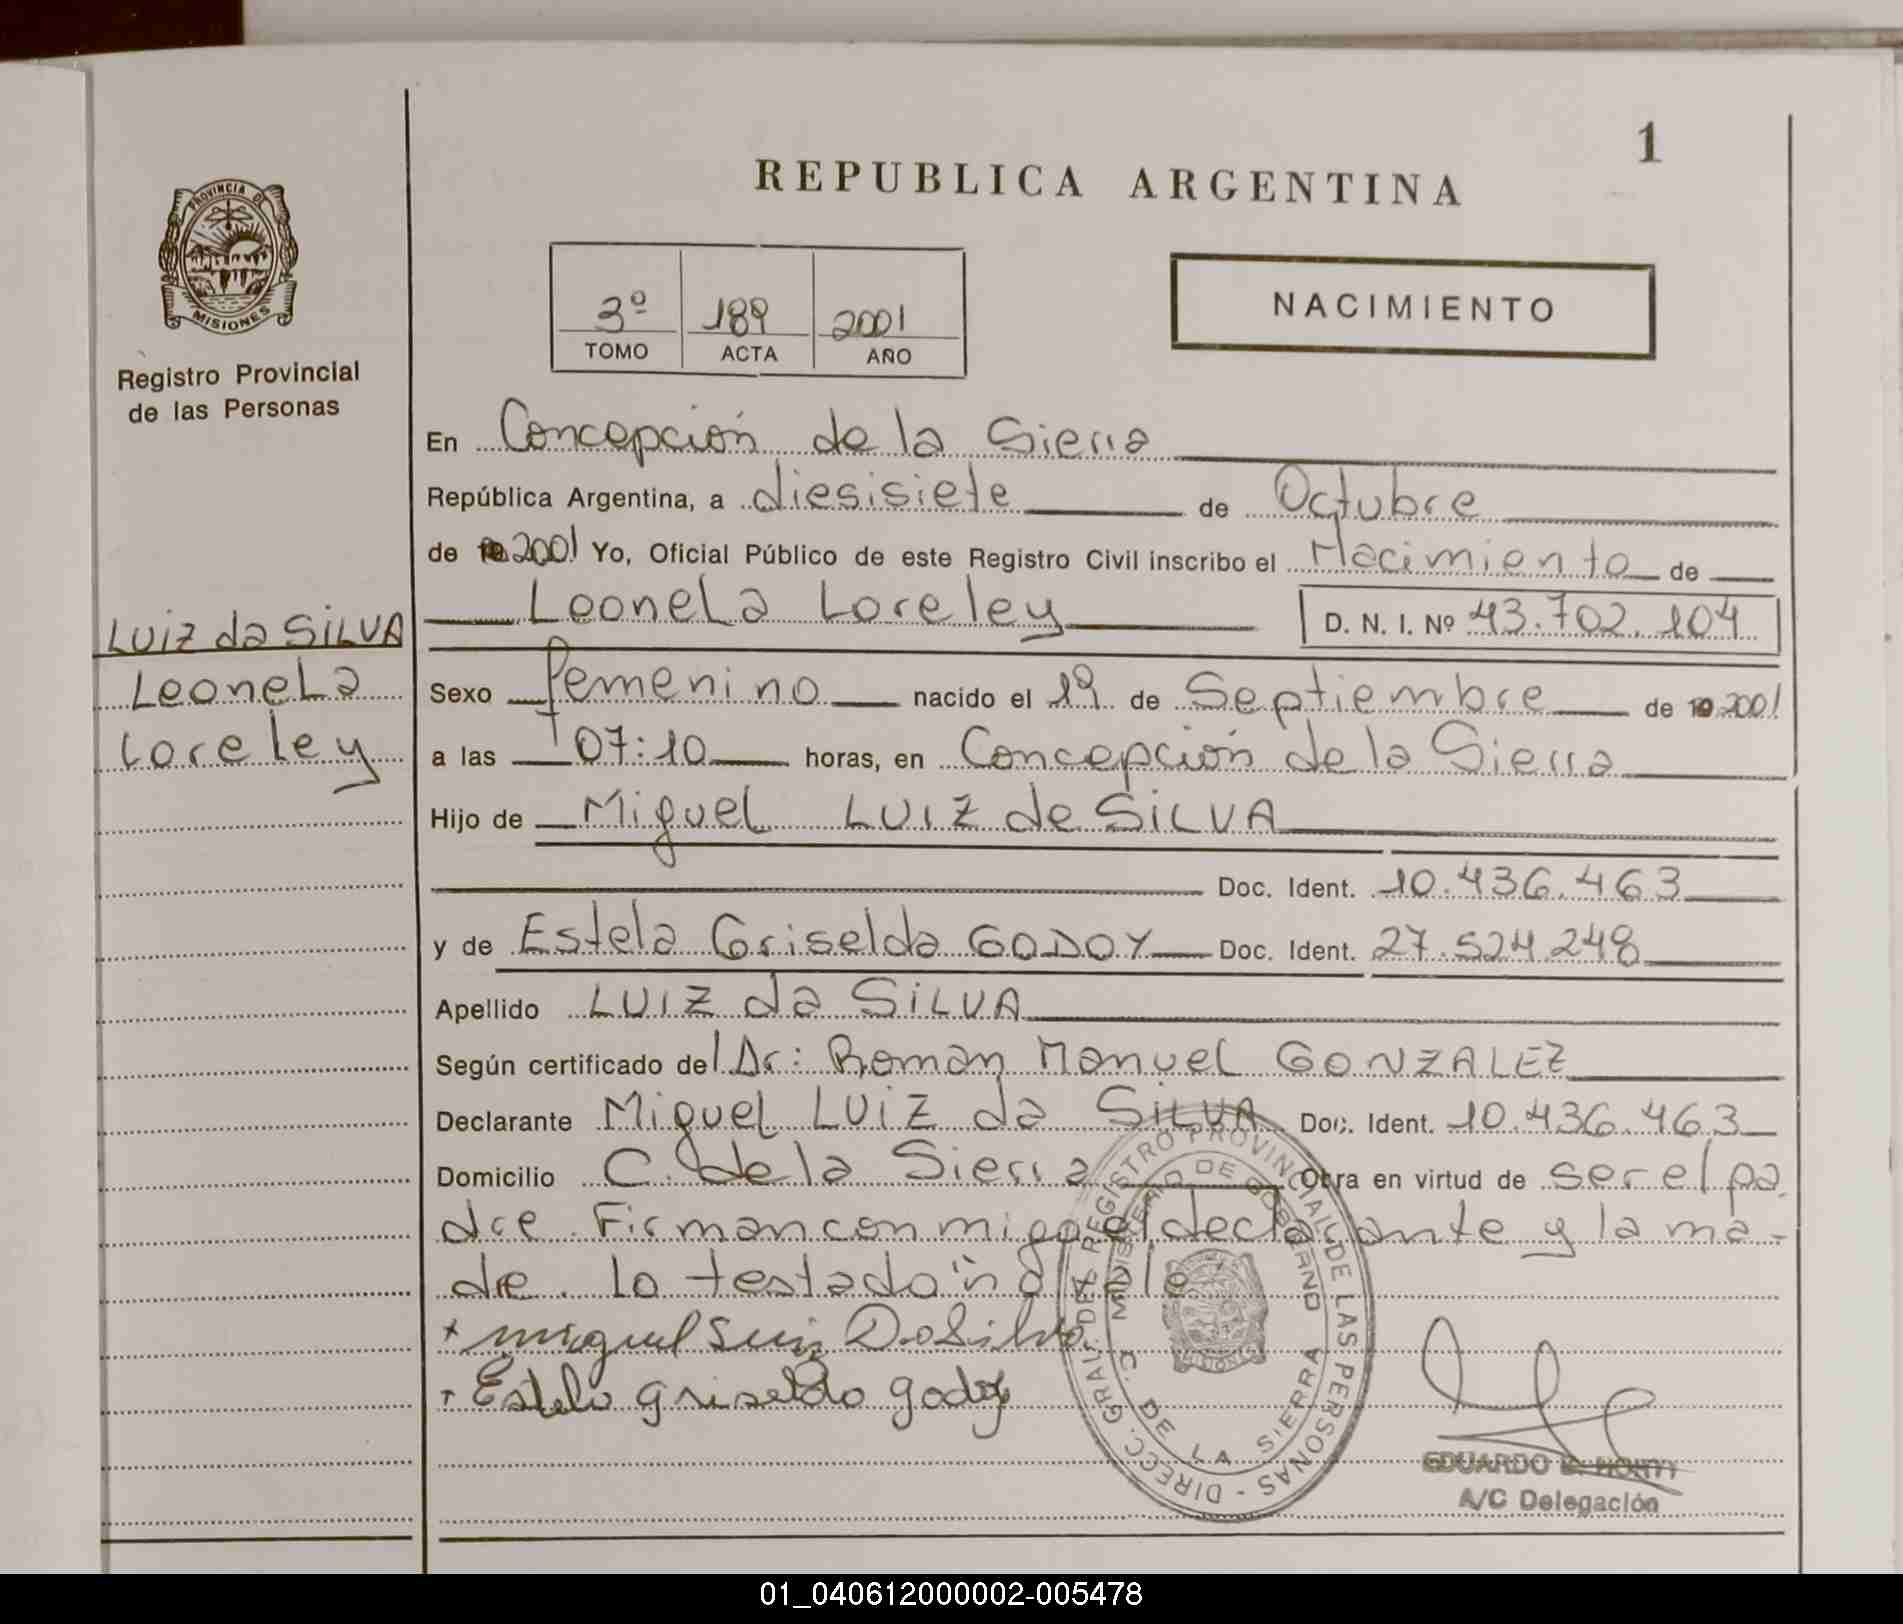 1
REPUBLICA ARGENTINA
PROVINCIA DE
MISIONES
Registro Provincial
de las Personas
3º 189 2001
TOMO ACTA AÑO
NACIMIENTO
En Concepción de la Sierra
República Argentina, a diesisiete de Octubre
de 2001 Yo, Oficial Público de este Registro Civil inscribo el Nacimiento de
Leonela Loreley D. N. I. Nº 43.702.104
LUIZ da SILVA
Leonela
Loreley
Sexo femenino nacido el 19 de Septiembre de 2001
a las 07:10 horas, en Concepción de la Sierra
Hijo de Miguel LUIZ de SILVA
Doc. Ident. 10.436.463
y de Estela Griselda GODOY Doc. Ident. 27.524.248
Apellido LUIZ da SILVA
Según certificado del Dr: Roman Manuel GONZALEZ
Declarante Miguel LUIZ da SILVA Doc. Ident. 10.436.463
Domicilio C. de la Sierra Obra en virtud de ser el pa
dre Firman con migo el declarante y la ma-
dre. lo testado "no vale
+ miguel Luiz Da Silva
+ Estela griselda godoy
DIRECC. GRAL. DEL REGISTRO PROVINCIAL DE LAS PERSONAS -
MINISTERIO DE GOBIERNO
C. DE LA SIERRA
MISIONES
EDUARDO
A/C Delegación
01_040612000002-005478